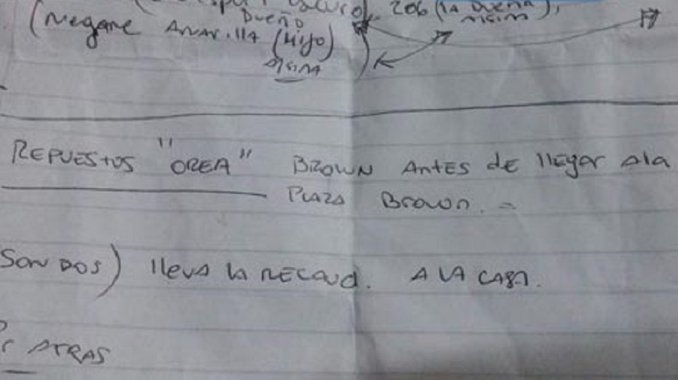 oscuro) 206 (la Dueña
Dueño misma),
(Megane Amarilla (Hijo)
misma
REPUESTOS "OREA" BROWN Antes de llegar A la
PLAZA Brown. -
SON DOS) lleva la RECAUD. A LA CASA.
ATRAS